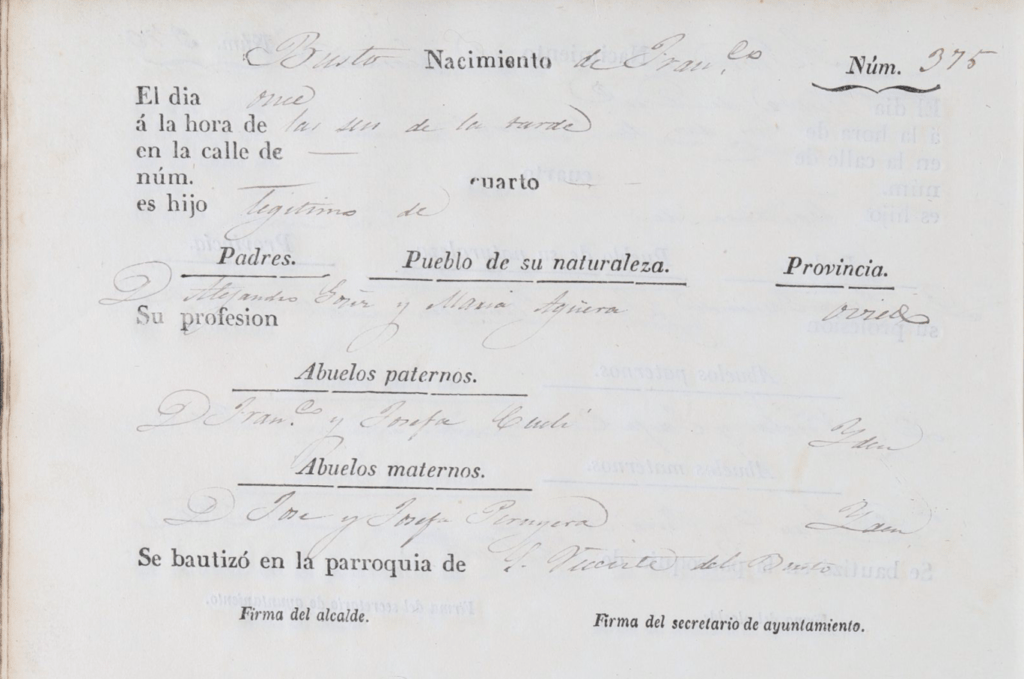 Busto Nacimiento de Fran.co Núm. 375
El dia once
á la hora de las seis de la tarde
en la calle de —
núm. — cuarto —
es hijo legitimo de
Padres. Pueblo de su naturaleza. Provincia.
D Alejandro y Maria Agüera Oviedo
Su profesion
Abuelos paternos.
D Fran.co y Josefa Yden
Abuelos maternos.
D Jose y Josefa Peruyera Yden
Se bautizó en la parroquia de S. Vicente del Busto
Firma del alcalde. Firma del secretario de ayuntamiento.